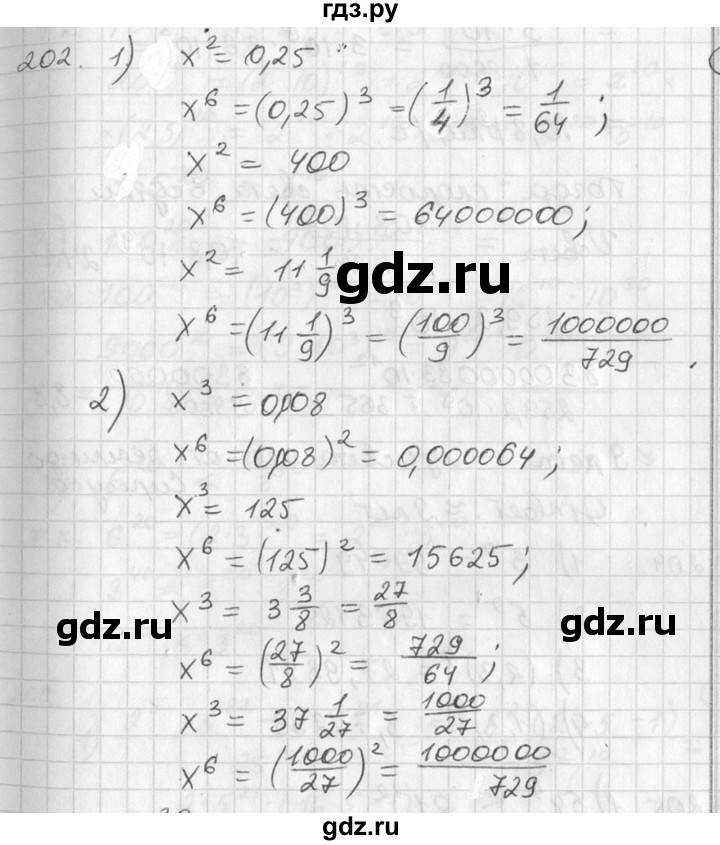 гдз.ру
202. 1) x² = 0,25
x⁶ = (0,25)³ = (1/4)³ = 1/64;
x² = 400
x⁶ = (400)³ = 64000000;
x² = 11 1/9
gdz.ru
x⁶ = (11 1/9)³ = (100/9)³ = 1000000/729.
2) x³ = 0,08
x⁶ = (0,08)² = 0,000064;
x³ = 125
x⁶ = (125)² = 15625;
x³ = 3 3/8 = 27/8
gdz.ru
gdz.ru
x⁶ = (27/8)² = 729/64;
x³ = 37 1/27 = 1000/27
x⁶ = (1000/27)² = 1000000/729
gdz.ru